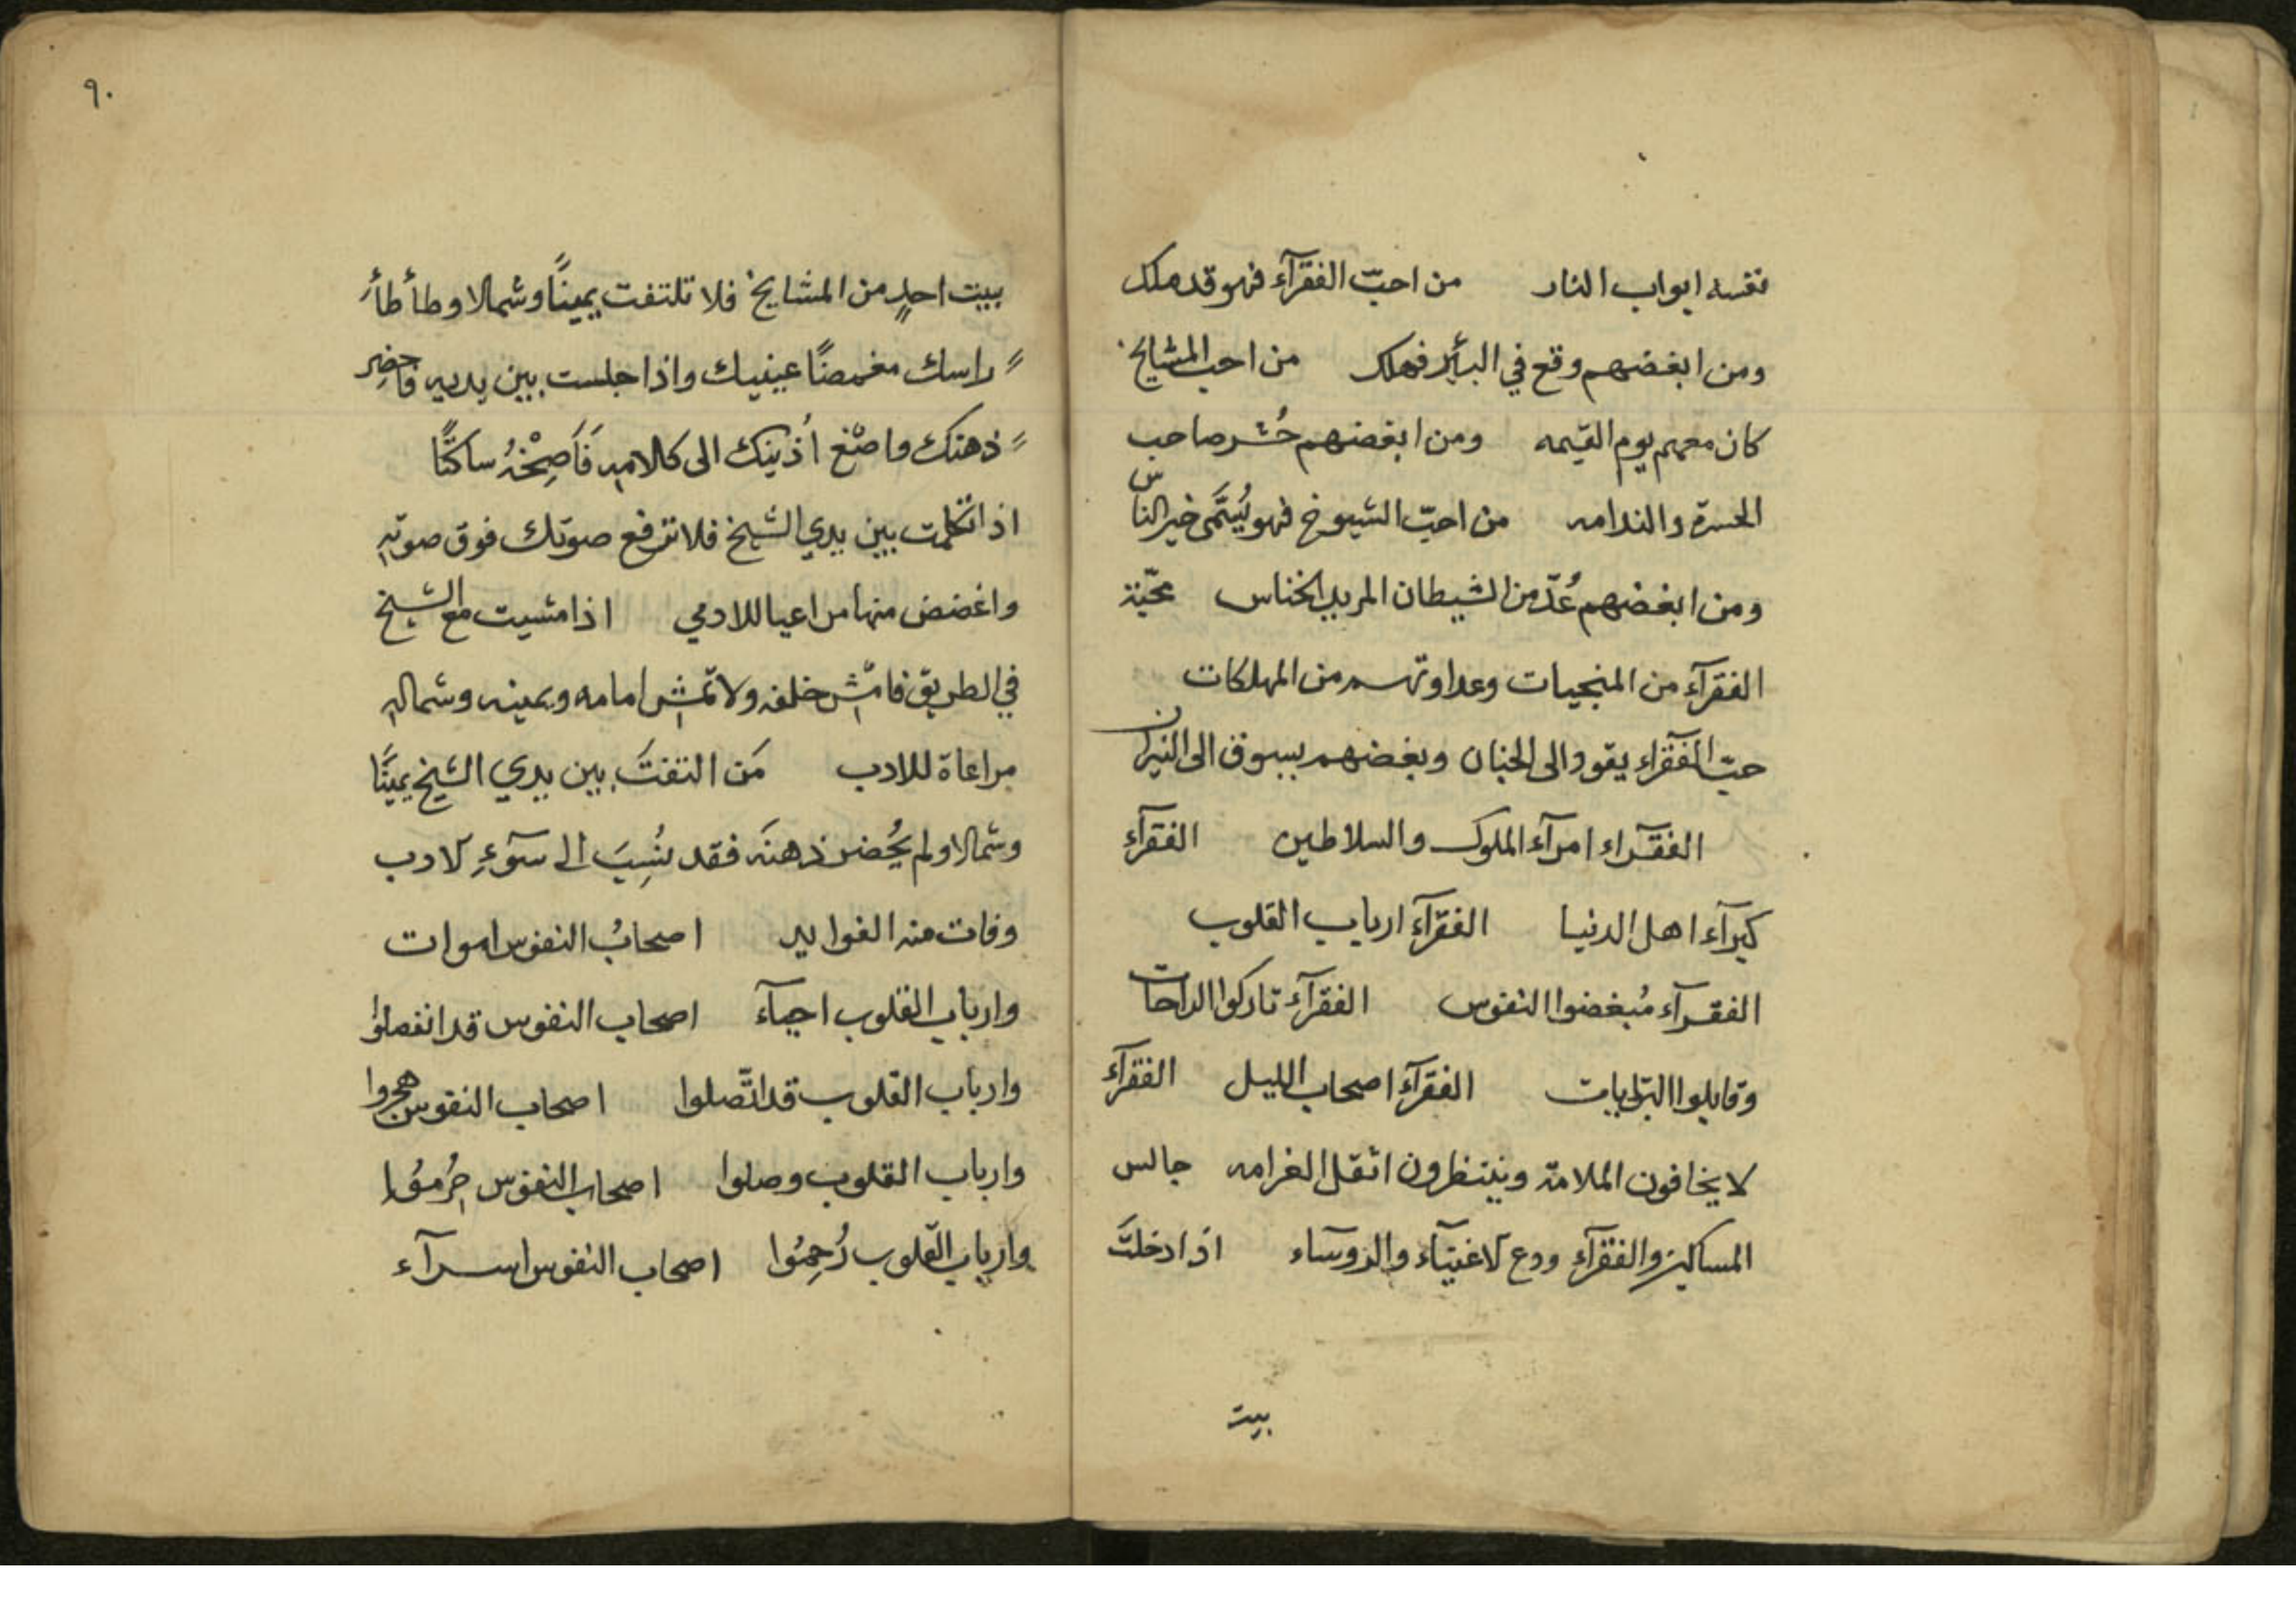 نفسه ابواب النار من احبّ الفقرآء فهو قد ملك
ومن ابغضهم وقع في البئر فهلك من احب المشايخ
كان معهم يوم القيمه ومن ابغضهم حُشر صاحب
الحسرة والندامه من احبّ الشيوخ فهو يُسَمَّى خير الناس
ومن ابغضهم عُدّ من الشيطان المريد الخناس محبّة
الفقرآء من المنجيات وعداوتهم من المهلكات
حبّ الفقرآء يقود الى الجنان وبغضهم يسوق الى النيران
الفقرآء امرآء الملوك والسلاطين الفقرآء
كبرآء اهل الدنيا الفقرآء ارباب القلوب
الفقرآء مُبغضوا النفوس الفقرآء تاركوا الراحات
وقابلوا البليات الفقرآء اصحاب الليل الفقرآء
لا يخافون الملامة وينتظرون اثقل الغرامه جالس
المساكين والفقرآء ودع الاغنيآء والروسآء اذا دخلتَ
بيت
٩٠
بيت احدٍ من المشايخ فلا تلتفت يمينًا وشمالا وطأطأ
راسك مغمضًا عينيك واذا جلست بين يديه فاحضِر
ذهنك واصْغ اُذنيك الى كلامهِ فَاَصِخْهُ ساكتًا
اذا تكلمت بين يدي الشيخ فلا ترفع صوتك فوق صوتهِ
واغضض منها مراعيا للادب اذا مشيت مع الشيخ
في الطريق فامشِ خلفه ولا تمشِ امامه ويمينه وشمالهِ
مراعاة للادب مَن التفتَ بين يدي الشيخ يمينًا
وشمالا ولم يُحضر ذهنَه فقد نُسِبَ الى سوٓءِ الادب
وفات منه الفوايد اصحابُ النفوس اموات
وارباب القلوب احيآء اصحاب النفوس قد انفصلوا
وارباب القلوب قد اتَّصلوا اصحاب النفوس هجروا
وارباب القلوب وصلوا اصحاب النفوس حُرِمُوا
وارباب القلوب رُحِمُوا اصحاب النفوس اسرآء